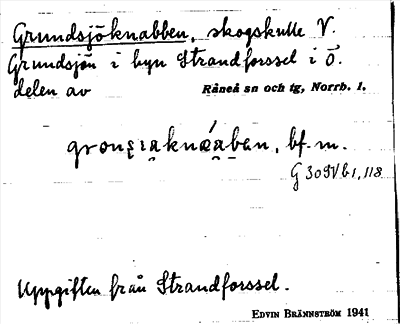 Grundsjöknabben, skogskulle V.
Grundsjön i byn Strandforssel i Ö.
delen av Råneå sn och tg, Norrb. l.
bf. m.
G 309 V b 1, 118
Uppgiften från Strandforssel.
EDVIN BRÄNNSTRÖM 1941